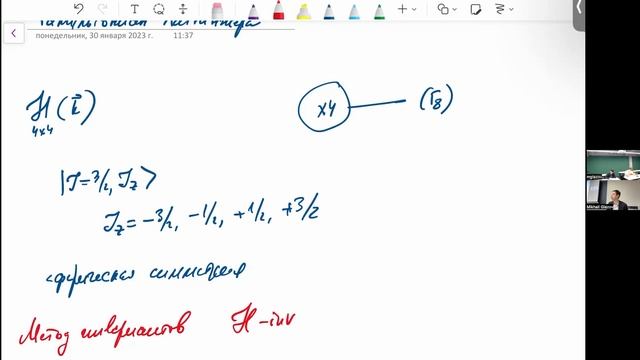 Гамильтониан Латтинжера
понедельник, 30 января 2023 г. 11:37
H(k⃗)
4x4
x4
(Γ8)
|J=3/2, Jz>
Jz = -3/2, -1/2, +1/2, +3/2
сферическая симметрия
Метод инвариантов H-inv
Mikhail Glazov